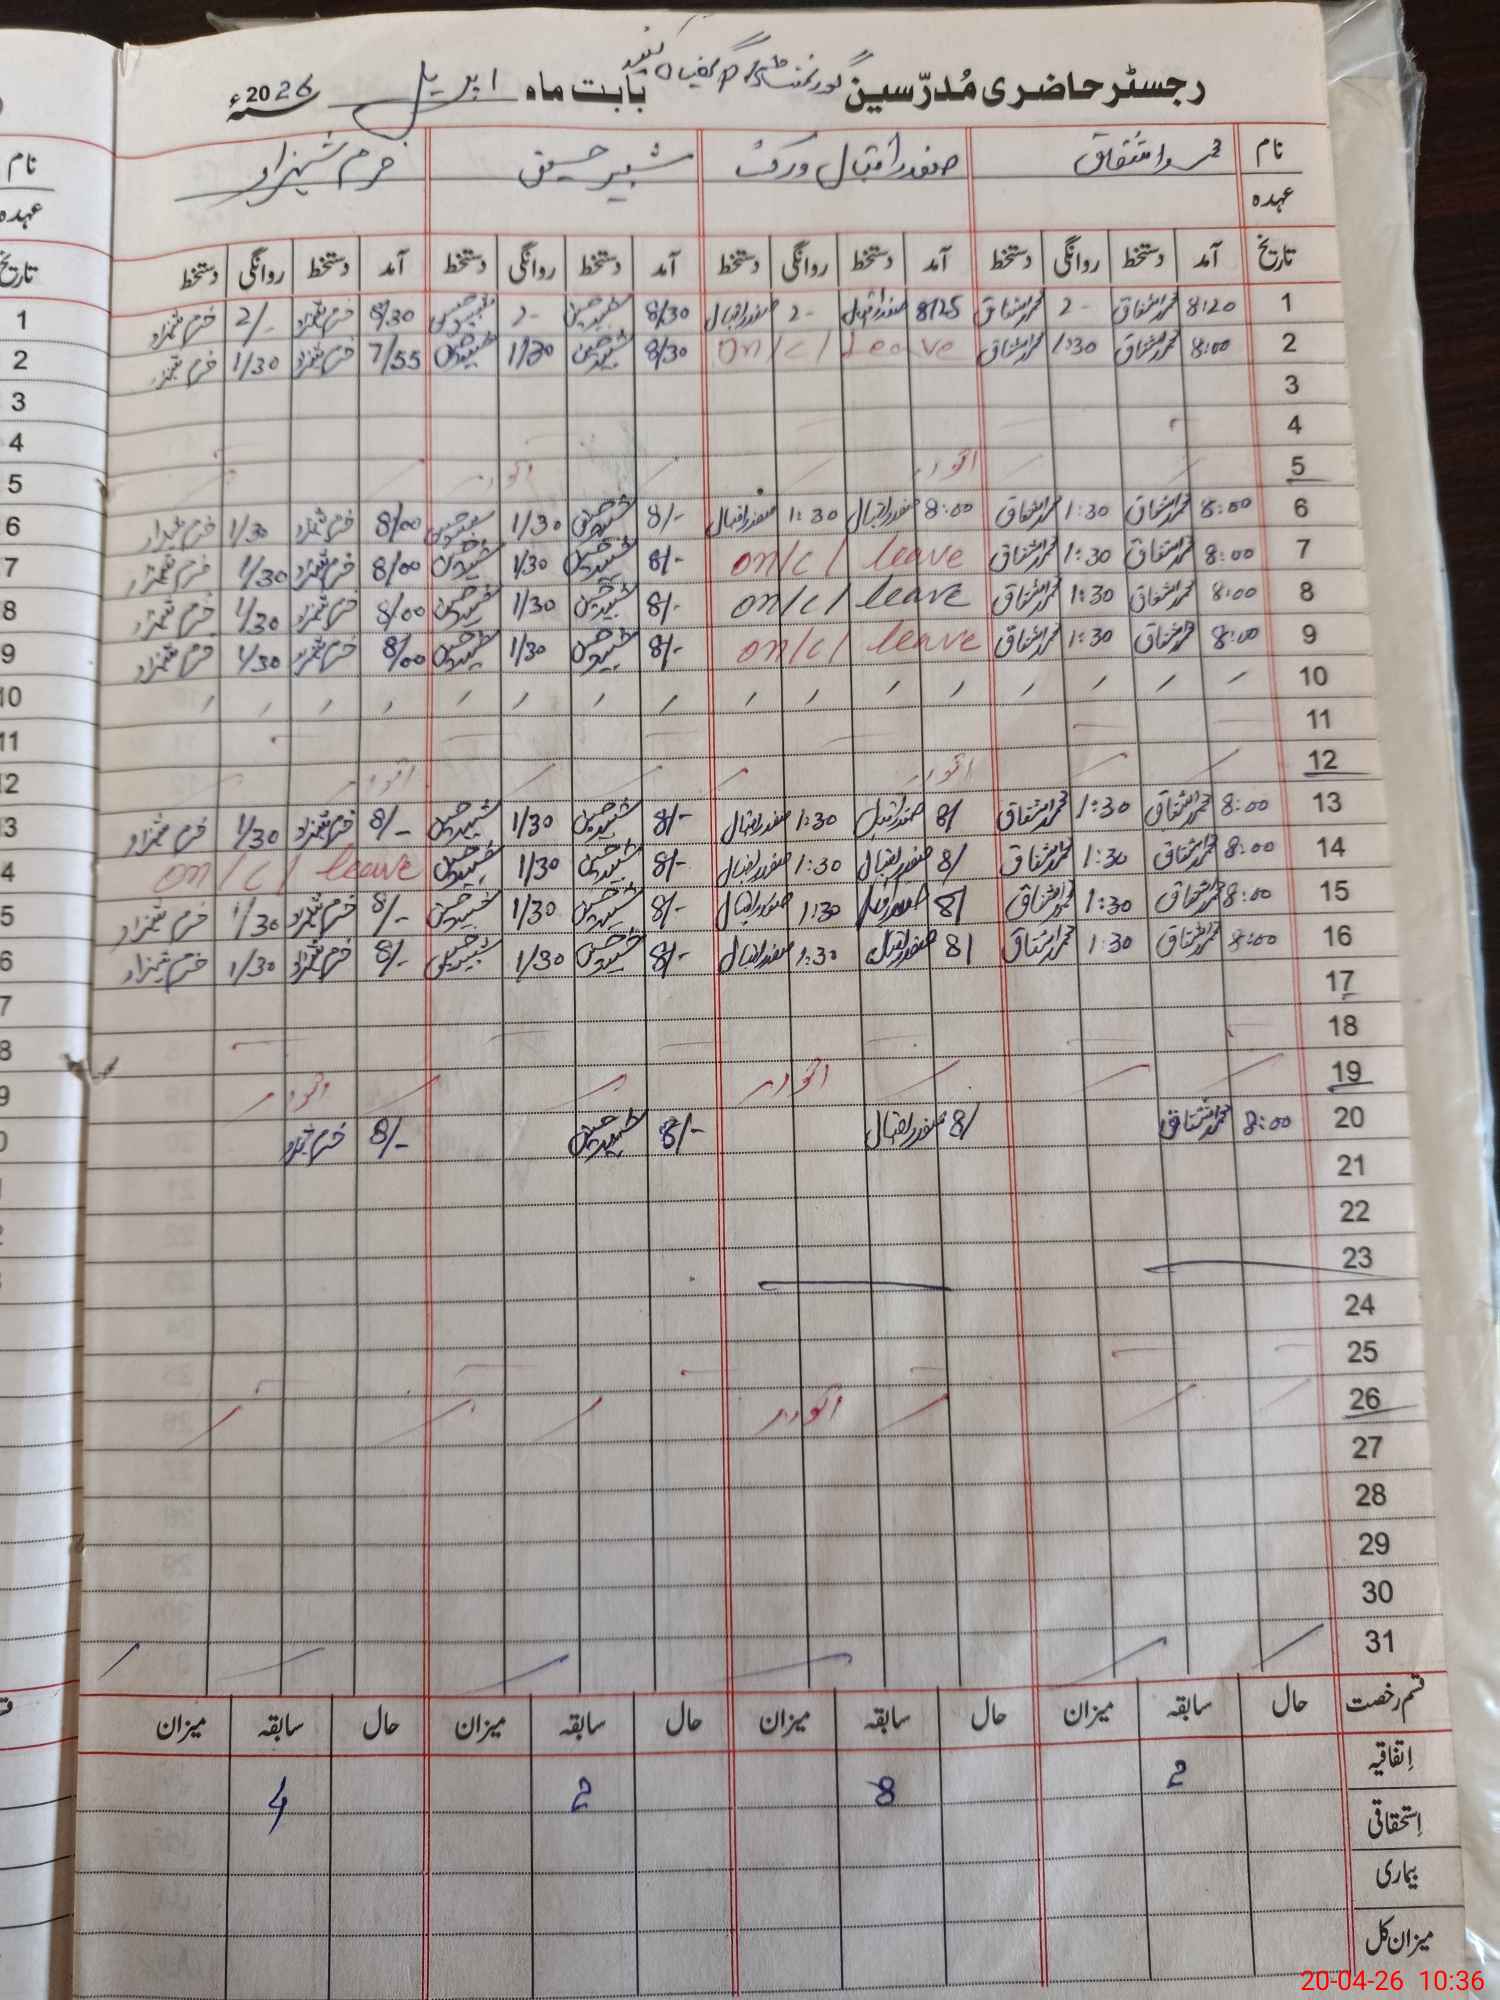 رجسٹر حاضری مُدرّسین گورنمنٹ بابت ماہ اپریل سنہ 2026ء
نام محمد اشفاق صفدر اقبال ورک شبیر حسین خرم شہزاد
عہدہ
تاریخ آمد دستخط روانگی دستخط آمد دستخط روانگی دستخط آمد دستخط روانگی دستخط آمد دستخط روانگی دستخط
1 8:20 محمد اشفاق 2- محمد اشفاق 8/25 صفدر اقبال 2- صفدر اقبال 8/30 شبیر حسین 2- شبیر حسین 8/30 خرم شہزاد 2/- خرم شہزاد
2 8:00 محمد اشفاق 1:30 محمد اشفاق on/c/ Leave 8/30 شبیر حسین 1/30 شبیر حسین 7/55 خرم شہزاد 1/30 خرم شہزاد
3
4
5 اتوار اتوار
6 8:00 محمد اشفاق 1:30 محمد اشفاق 8:00 صفدر اقبال 1:30 صفدر اقبال 8/- شبیر حسین 1/30 شبیر حسین 8/00 خرم شہزاد 1/30 خرم شہزاد
7 8:00 محمد اشفاق 1:30 محمد اشفاق on/c/ leave 8/- شبیر حسین 1/30 شبیر حسین 8/00 خرم شہزاد 1/30 خرم شہزاد
8 8:00 محمد اشفاق 1:30 محمد اشفاق on/c/ leave 8/- شبیر حسین 1/30 شبیر حسین 8/00 خرم شہزاد 1/30 خرم شہزاد
9 8:00 محمد اشفاق 1:30 محمد اشفاق on/c/ leave 8/- شبیر حسین 1/30 شبیر حسین 8/00 خرم شہزاد 1/30 خرم شہزاد
10
11
12 اتوار اتوار
13 8:00 محمد اشفاق 1:30 محمد اشفاق 8/ صفدر اقبال 1:30 صفدر اقبال 8/- شبیر حسین 1/30 شبیر حسین 8/- خرم شہزاد 1/30 خرم شہزاد
14 8:00 محمد اشفاق 1:30 محمد اشفاق 8/ صفدر اقبال 1:30 صفدر اقبال 8/- شبیر حسین 1/30 شبیر حسین on/c/ leave
15 8:00 محمد اشفاق 1:30 محمد اشفاق 8/ صفدر اقبال 1:30 صفدر اقبال 8/- شبیر حسین 1/30 شبیر حسین 8/- خرم شہزاد 1/30 خرم شہزاد
16 8:00 محمد اشفاق 1:30 محمد اشفاق 8/ صفدر اقبال 1:30 صفدر اقبال 8/- شبیر حسین 1/30 شبیر حسین 8/- خرم شہزاد 1/30 خرم شہزاد
17
18
19 اتوار اتوار
20 8:00 محمد اشفاق 8/ صفدر اقبال 8/- شبیر حسین 8/- خرم شہزاد
21
22
23
24
25
26 اتوار
27
28
29
30
31
قسم رخصت حال سابقہ میزان حال سابقہ میزان حال سابقہ میزان حال سابقہ میزان
اِتفاقیہ 2 8 2 4
اِستحقاقی
بیماری
میزان کل
20-04-26 10:36